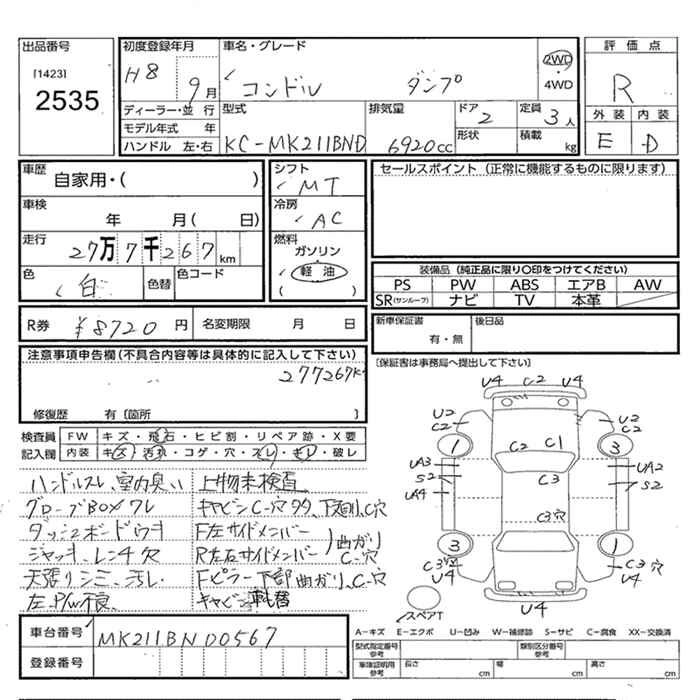 出品番号 初度登録年月 車名・グレード 2WD 評価点
[1423] H8 9月 コンドル ダンプ ・4WD R
2535 ディーラー・並行 型式 排気量 ドア 定員 外装 内装
モデル年式 年 KC-MK211BND 6920cc 2 3人 E D
ハンドル 左・右 形状 積載 kg
車歴 自家用・( ) シフト MT セールスポイント (正常に機能するものに限ります)
車検 年 月( 日) 冷房 AC
走行 27万7千267km 燃料 ガソリン
色 白 色替 色コード 軽油 ( )
装備品 (純正品に限り○印をつけてください)
PS PW ABS エアB AW
SR(サンルーフ) ナビ TV 本革
R券 ¥8720円 名変期限 月 日 新車保証書 有・無 後日品
注意事項申告欄(不具合内容等は具体的に記入して下さい) [保証書は事務局へ提出して下さい]
277267K
修復歴 有 [箇所 ]
検査員 FW キズ・飛石・ヒビ割・リペア跡・X要
記入欄 内装 キズ・汚れ・コゲ・穴・スレ・キレ・破レ
ハンドルスレ、室内臭い 上物未検査
グローブBOXワレ キャビンC-穴多々、下廻りC穴
ダッシュボードウキ F左サイドメンバー
ジャッキ、レンチ欠 R左右サイドメンバー 曲がりC-穴
天張りシミ、汚レ Fピラー下部曲がり、C-穴
左P/W不良 キャビン載せ替
U4 C2 U4
U2 C2 U2 C2
1 C2 C1 3
UA3 S2 C3 UA2 S2
UA4 C3穴
3 1
C3穴 U4 C3穴 U4
U4
スペアT
車台番号 MK211BN D0567
登録番号
A-キズ E-エクボ U-凹み W-補修跡 S-サビ C-腐食 XX-交換済
型式指定番号 参考 類別区分番号 参考
車庫証明用 参考 長さ cm 幅 cm 高さ cm